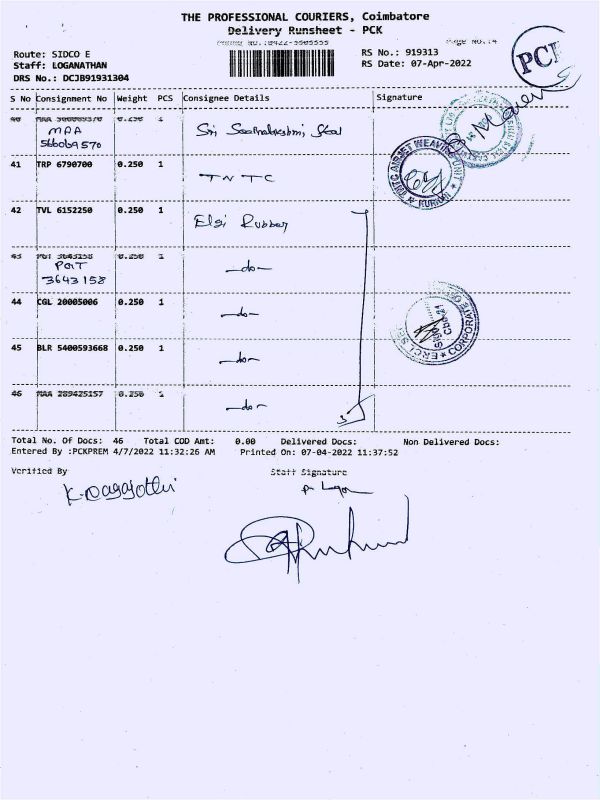 THE PROFESSIONAL COURIERS, Coimbatore
Delivery Runsheet - PCK
Route: SIDCO E
Staff: LOGANATHAN
DRS No.: DCJB91931304
RS No.: 919313
RS Date: 07-Apr-2022
PCK
S No Consignment No Weight PCS Consignee Details Signature
40 MAA 566069570 0.250 1
MAA
566069570
41 TRP 6790700 0.250 1 TNTC
42 TVL 6152250 0.250 1 Elgi Rubber
43 PGT 3643158 0.250 1 -do-
PGT
3643158
44 CGL 20005006 0.250 1 -do-
45 BLR 5400593668 0.250 1 -do-
46 MAA 289425157 0.250 1 -do-
Total No. Of Docs: 46 Total COD Amt: 0.00 Delivered Docs: Non Delivered Docs:
Entered By :PCKPREM 4/7/2022 11:32:26 AM Printed On: 07-04-2022 11:37:52
Verified By Staff Signature